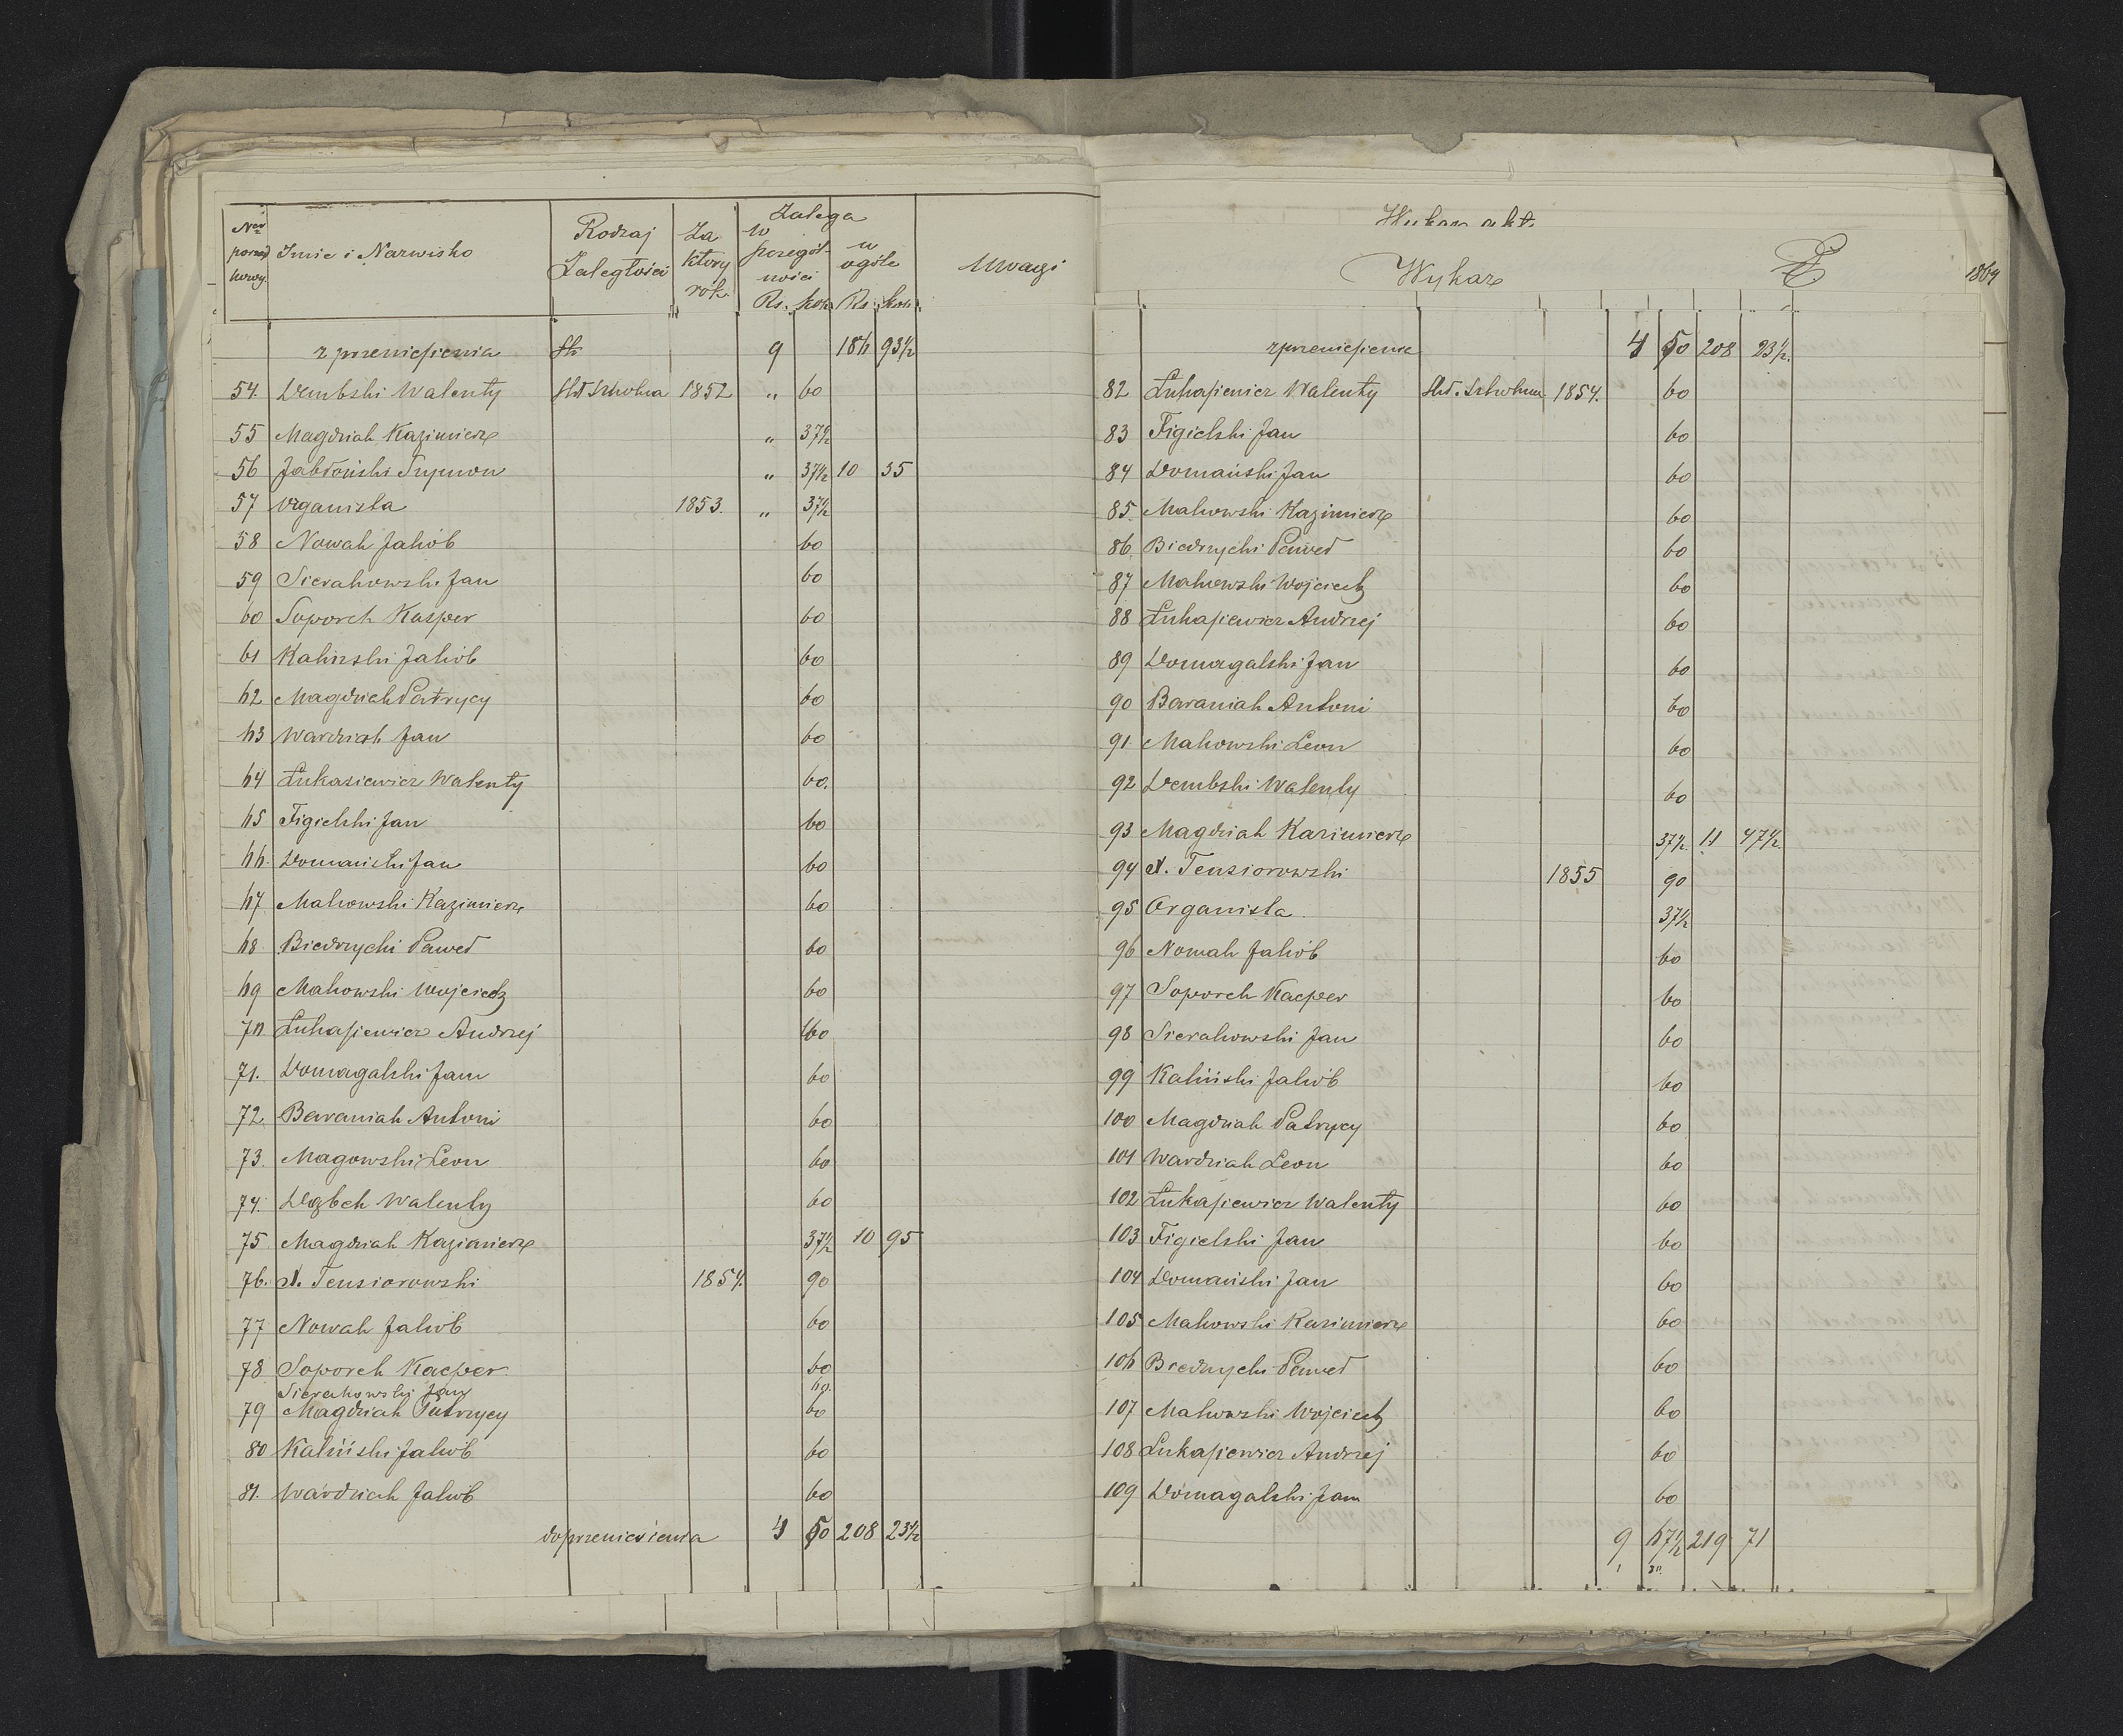 Ner porząd kowy. Imie i Nazwisko Rodzaj Zaległości Za ktory rok. Zalega w szczegól- ności Rs. kop. w ogóle Rs. kop. Uwagi
z przeniesienia Sk 9 186 93½
54. Dembski Walenty Skł Szkolna 1852 „ 60
55 Magdziak Kazimierz „ 37½
56 Jabłoński Szymon „ 37½ 10 35
57 Organista 1853. „ 37½
58 Nowak Jakób 60
59 Sierakowski Jan 60
60 Soporek Kasper 60
61 Kaliński Jakób 60
62 Magdziak Patrycy 60
63 Wardziak Jan 60
64 Łukasiewicz Walenty 60.
65 Figielski Jan 60
66. Domański Jan 60
67 Makowski Kazimierz 60
68 Biedrzycki Paweł 60
69 Makowski Wojciech 60
70 Łukasiewicz Andrzej 60
71. Domagalski Jan 60
72. Baraniak Antoni 60
73. Magowski Leon 60
74. Walenty 60
75 Magdziak Kazimierz 37½ 10 95
76. A. Tensiorowski 1854. 90
77 Nowak Jakób 60
78 Soporek Kacper 60
Sierakowski Jan 60.
79 Magdziak Patrycy 60
80 Kaliński Jakób 60
81. Wardziak Jakób 60
do przeniesienia 4 50 208 23½
Wykaz akt.
Wykaz
1864
z przeniesienia 4 50 208 23½.
82 Łukasiewicz Walenty Skł. Szkolna 1854. 60
83 Figielski Jan 60
84 Domański Jan 60
85. Makowski Kazimierz 60
86. Biedrzycki Paweł 60
87 Makowski Wojciech 60
88 Łukasiewicz Andrzej 60
89 Domagalski Jan 60
90 Baraniak Antoni 60
91 Makowski Leon 60
92 Dembski Walenty 60
93 Magdziak Kazimierz 37½. 11 47½.
94 A. Tensiorowski 1855 90
95 Organista 37½
96 Nowak Jakób 60
97 Soporek Kacper 60
98 Sierakowski Jan 60
99 Kaliński Jakób 60
100 Magdziak Patrycy 60
101 Wardziak Leon 60
102 Łukasiewicz Walenty 60
103 Figielski Jan 60
104 Domański Jan 60
105 Makowski Kazimierz 60
106 Biedrzycki Paweł 60
107 Makowski Wojciech 60
108 Łukasiewicz Andrzej 60
109 Domagalski Jan 60
9 67½ 219 71